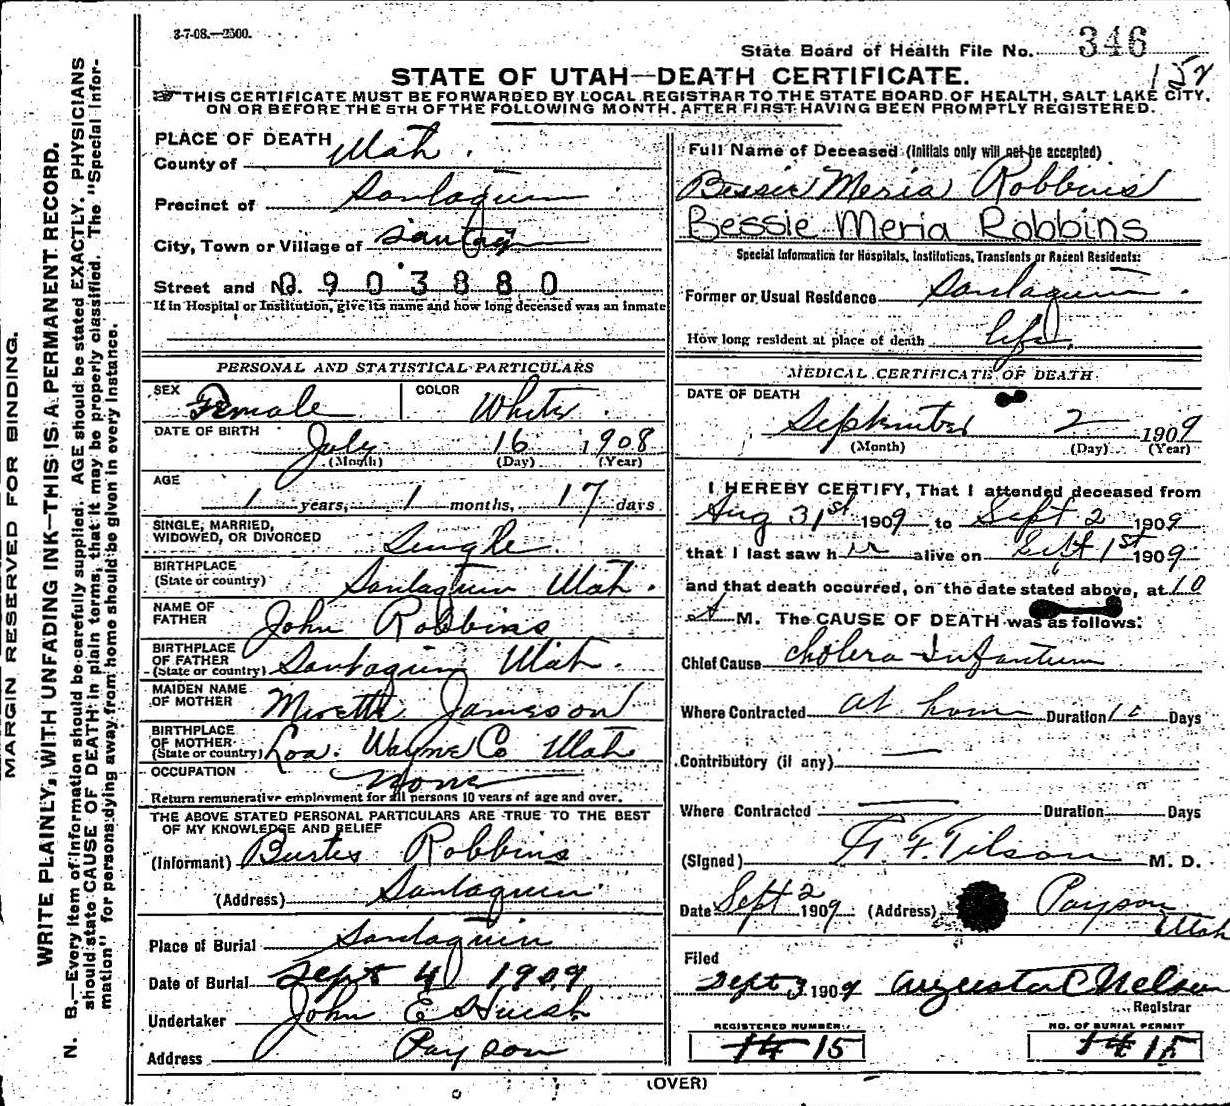 3-7-08.—2500.
State Board of Health File No. 346
152
STATE OF UTAH—DEATH CERTIFICATE.
THIS CERTIFICATE MUST BE FORWARDED BY LOCAL REGISTRAR TO THE STATE BOARD OF HEALTH, SALT LAKE CITY,
ON OR BEFORE THE 5TH OF THE FOLLOWING MONTH, AFTER FIRST HAVING BEEN PROMPTLY REGISTERED.
MARGIN RESERVED FOR BINDING.
WRITE PLAINLY, WITH UNFADING INK—THIS IS A PERMANENT RECORD.
N. B.—Every item of information should be carefully supplied. AGE should be stated EXACTLY. PHYSICIANS
should state CAUSE OF DEATH in plain terms, that it may be properly classified. The "Special Infor-
mation" for persons dying away from home should be given in every instance.
PLACE OF DEATH
County of Utah.
Precinct of Santaquin
City, Town or Village of Santaquin
Street and No. 0903880
If in Hospital or Institution, give its name and how long deceased was an inmate
PERSONAL AND STATISTICAL PARTICULARS
SEX Female COLOR White.
DATE OF BIRTH July 16 1908
(Month) (Day) (Year)
AGE
1 years, 1 months, 17 days
SINGLE, MARRIED,
WIDOWED, OR DIVORCED Single
BIRTHPLACE
(State or country) Santaquin Utah.
NAME OF
FATHER John Robbins
BIRTHPLACE
OF FATHER
(State or country) Santaquin Utah.
MAIDEN NAME
OF MOTHER Jameson
BIRTHPLACE
OF MOTHER
(State or country) Loa. Wayne Co Utah
OCCUPATION None
Return remunerative employment for all persons 10 years of age and over.
THE ABOVE STATED PERSONAL PARTICULARS ARE TRUE TO THE BEST
OF MY KNOWLEDGE AND BELIEF
(Informant) Robbins
(Address) Santaquin
Place of Burial Santaquin
Date of Burial Sept 4 1909
Undertaker John E Huish
Address Payson
Full Name of Deceased (Initials only will not be accepted)
Bessie Meria Robbins
Bessie Meria Robbins
Special Information for Hospitals, Institutions, Transients or Recent Residents:
Former or Usual Residence Santaquin.
How long resident at place of death life.
MEDICAL CERTIFICATE OF DEATH
DATE OF DEATH
September 2 1909
(Month) (Day) (Year)
I HEREBY CERTIFY, That I attended deceased from
Aug 31st 1909 to Sept 2 1909
that I last saw her alive on Sept 1st 1909
and that death occurred, on the date stated above, at 10
A M. The CAUSE OF DEATH was as follows:
Chief Cause cholera Infantum
Where Contracted at home Duration 10 Days
Contributory (if any) —
Where Contracted — Duration Days
(Signed) F. Tilson M. D.
Date Sept 2 1909 (Address) Payson
Utah
Filed
Sept 3 1909 Augusta C Nelson
Registrar
REGISTERED NUMBER
14 15
NO. OF BURIAL PERMIT
14 15
(OVER)